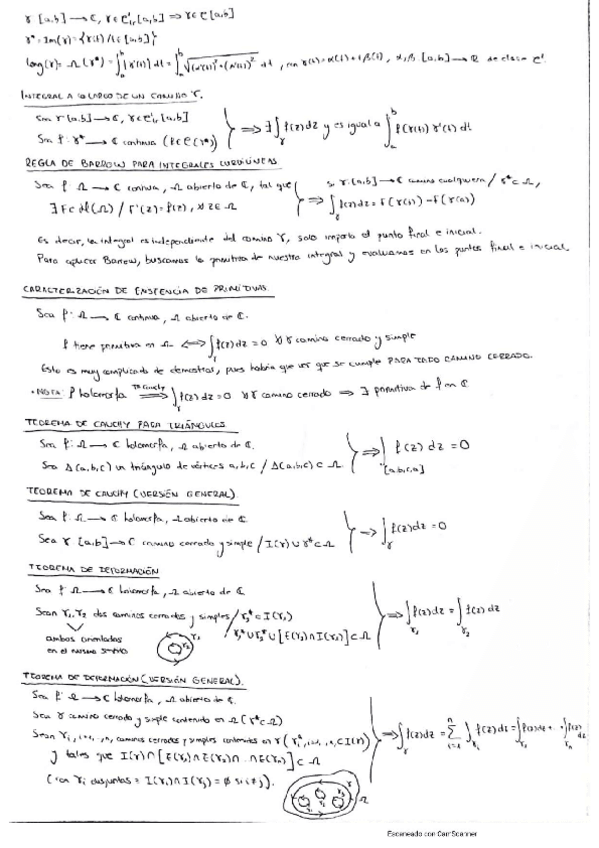 γ: [a,b] → ℂ, γ ∈ C¹, [a,b] ⇒ γ ∈ C[a,b]
γ* = Im(γ) = {γ(t) / t ∈ [a,b]}
long(γ) = (γ*) = ∫ₐᵇ |γ'(t)| dt = ∫ₐᵇ √((α'(t))² + (β'(t))²) dt, con γ(t) = α(t) + iβ(t), α, β: [a,b] → ℝ de clase C¹.
INTEGRAL A LO LARGO DE UN CAMINO γ.
Sea γ: [a,b] → ℂ, γ ∈ C¹[a,b]
Sea f: γ* → ℂ continua (f ∈ C(γ*)) } ⇒ ∃ ∫_γ f(z)dz y es igual a ∫ₐᵇ f(γ(t)) γ'(t) dt
REGLA DE BARROW PARA INTEGRALES CURVILÍNEAS
Sea f: Ω → ℂ continua, Ω abierto de ℂ, tal que
∃ F ∈ H(Ω) / F'(z) = f(z), ∀z ∈ Ω } ⇒ si γ: [a,b] → ℂ camino cualquiera / γ* ⊂ Ω,
∫_γ f(z)dz = F(γ(b)) - F(γ(a))
Es decir, la integral es independiente del camino γ, solo importa el punto final e inicial.
Para aplicar Barrow, buscamos la primitiva de nuestra integral y evaluamos en los puntos final e inicial.
CARACTERIZACIÓN DE EXISTENCIA DE PRIMITIVAS.
Sea f: Ω → ℂ continua, Ω abierto de ℂ.
f tiene primitiva en Ω ⟺ ∫_γ f(z)dz = 0 ∀γ camino cerrado y simple
Esto es muy complicado de demostrar, pues habría que ver que se cumple PARA TODO CAMINO CERRADO.
• NOTA: f holomorfa ⇒ (Tª Cauchy) ∫_γ f(z)dz = 0 ∀γ camino cerrado ⇒ ∃ primitiva de f en ℂ
TEOREMA DE CAUCHY PARA TRIÁNGULOS
Sea f: Ω → ℂ holomorfa, Ω abierto de ℂ.
Sea Δ(a,b,c) un triángulo de vértices a, b, c / Δ(a,b,c) ⊂ Ω } ⇒ ∫_[a,b,c,a] f(z) dz = 0
TEOREMA DE CAUCHY (VERSIÓN GENERAL).
Sea f: Ω → ℂ holomorfa, Ω abierto de ℂ.
Sea γ: [a,b] → ℂ camino cerrado y simple / I(γ) ∪ γ* ⊂ Ω } → ∫_γ f(z)dz = 0
TEOREMA DE DEFORMACIÓN
Sea f: Ω → ℂ holomorfa, Ω abierto de ℂ
Sean γ₁, γ₂ dos caminos cerrados y simples / γ₂* ⊂ I(γ₁)
γ₁* ∪ γ₂* ∪ [E(γ₂) ∩ I(γ₁)] ⊂ Ω } ⇒ ∫_γ₁ f(z)dz = ∫_γ₂ f(z)dz
ambos orientados
en el mismo sentido
γ₁ γ₂
TEOREMA DE DEFORMACIÓN (VERSIÓN GENERAL).
Sea f: Ω → ℂ holomorfa, Ω abierto de ℂ.
Sea γ camino cerrado y simple contenido en Ω (γ* ⊂ Ω)
Sean γᵢ, i=1,..,n, caminos cerrados y simples contenidos en γ (γᵢ*, i=1,..,n, ⊂ I(γ))
y tales que I(γ) ∩ [E(γ₁) ∩ E(γ₂) ∩ .. ∩ E(γₙ)] ⊂ Ω } ⇒ ∫_γ f(z)dz = Σⁿᵢ₌₁ ∫_γᵢ f(z)dz = ∫_γ₁ f(z)dz + .. + ∫_γₙ f(z)dz
(con γᵢ disjuntas = I(γᵢ) ∩ I(γⱼ) = ∅ si i≠j).
γ γ₁ γ₂ γ₃ Ω
Escaneado con CamScanner